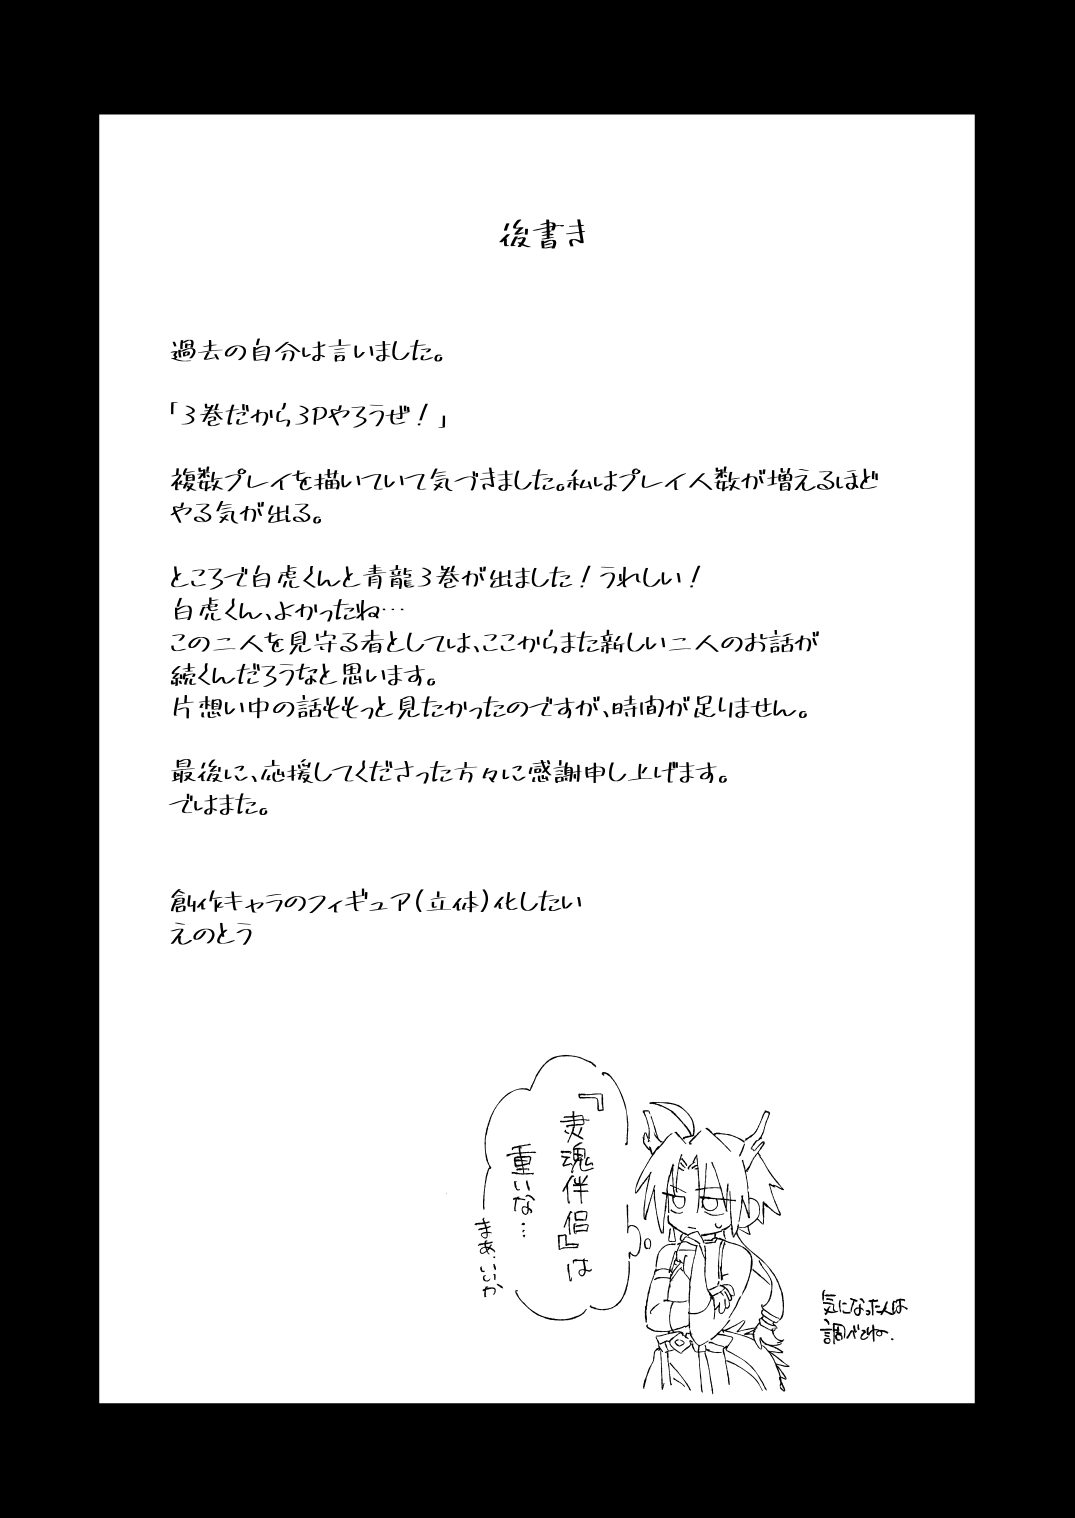 後書き
過去の自分は言いました。
「3巻だから3Pやろうぜ!」
複数プレイを描いていて気づきました。私はプレイ人数が増えるほど
やる気が出る。
ところで白虎くんと青龍3巻が出ました!うれしい!
白虎くん、よかったね…
この二人を見守る者としては、ここからまた新しい二人のお話が
続くんだろうなと思います。
片想い中の話ももっと見たかったのですが、時間が足りません。
最後に、応援してくださった方々に感謝申し上げます。
ではまた。
創作キャラのフィギュア(立体)化したい
えのとう
『灵魂伴侶』は
重いな…
まあ、いいか
気になった人は
調べてね。